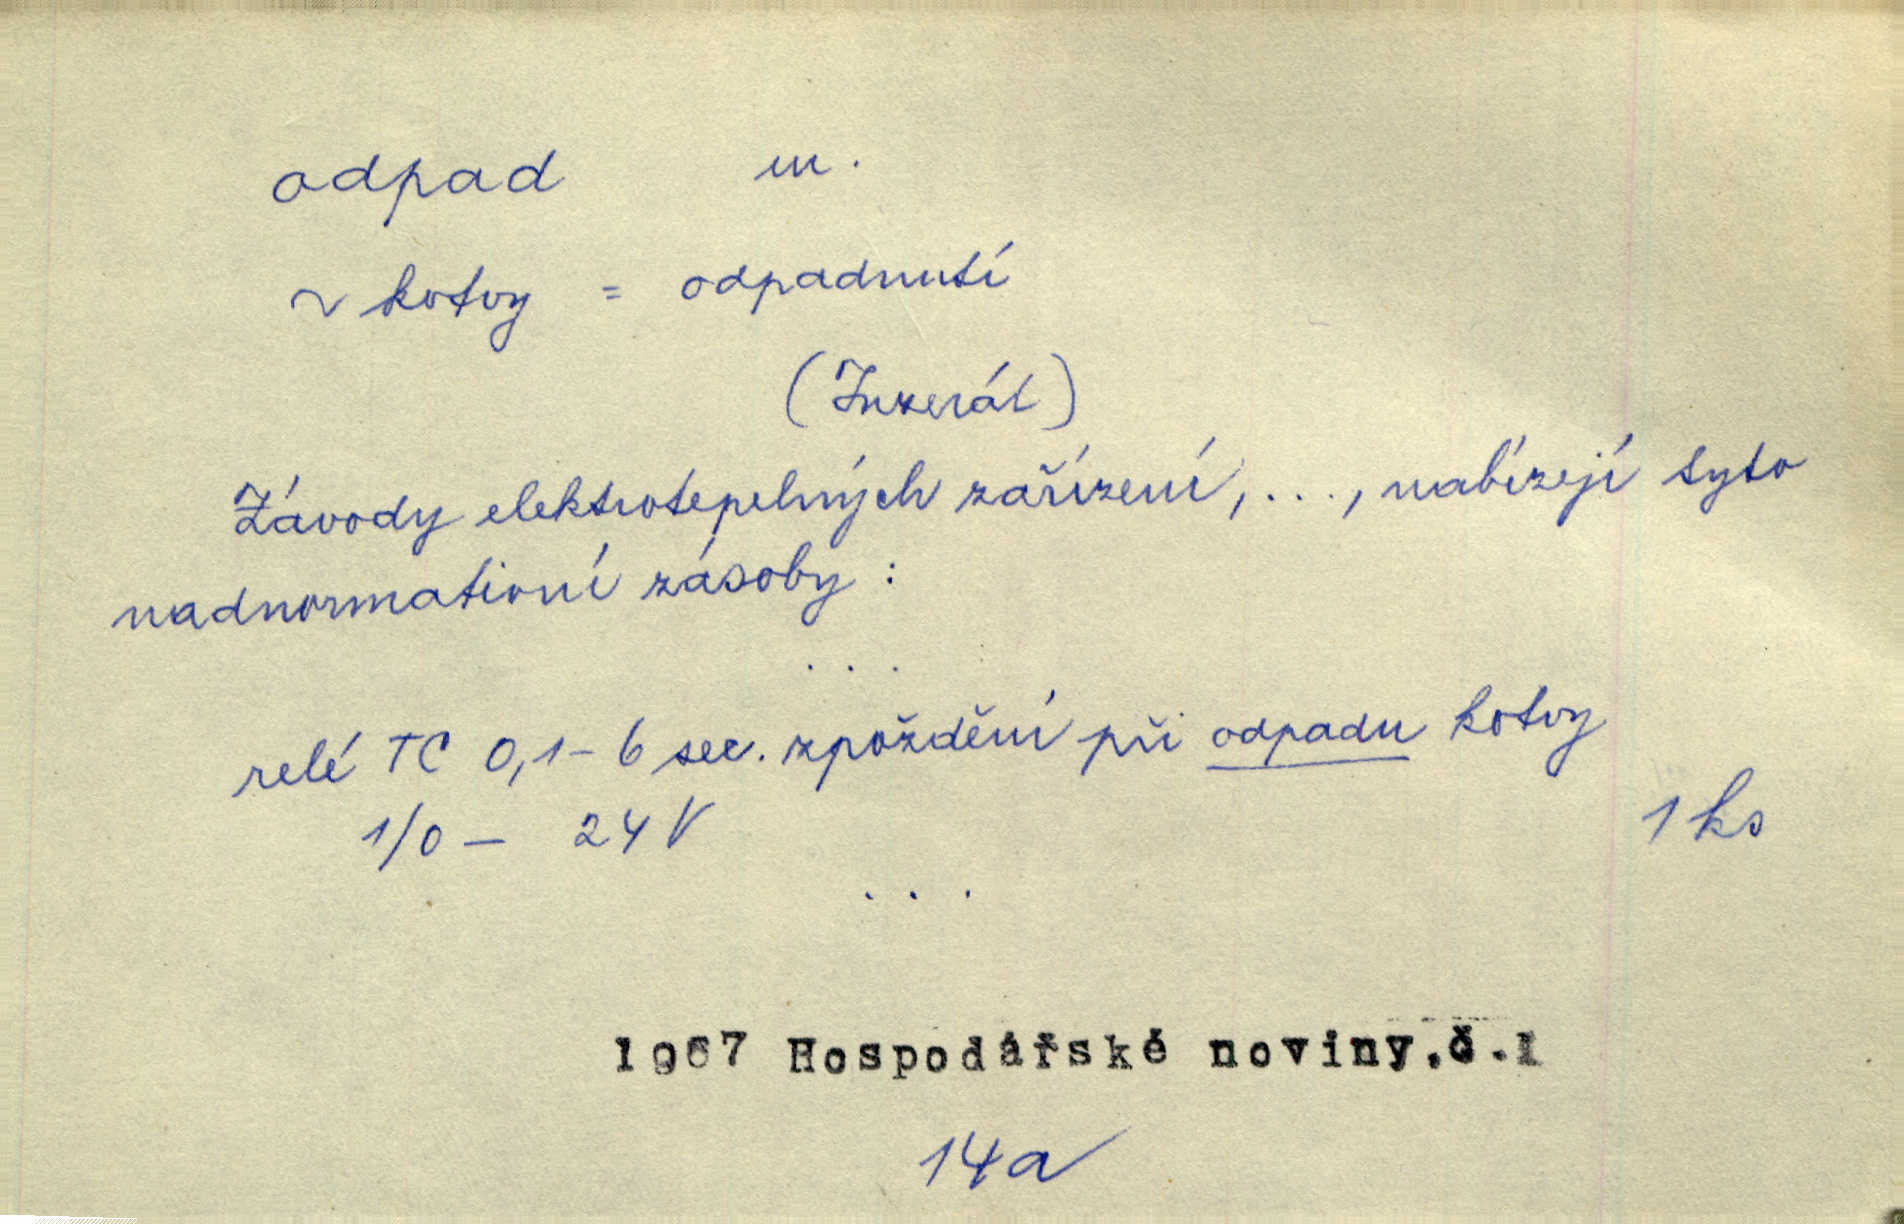 odpad m.
~ kotvy = odpadnutí
(Inzerát)
Závody elektrotepelných zařízení, ..., nabízejí tyto
nadnormativní zásoby :
...
relé TC 0,1 – 6 sec. zpoždění při odpadu kotvy
1/0 – 24 V 1 ks
...
1967 Hospodářské noviny,č.1
14a